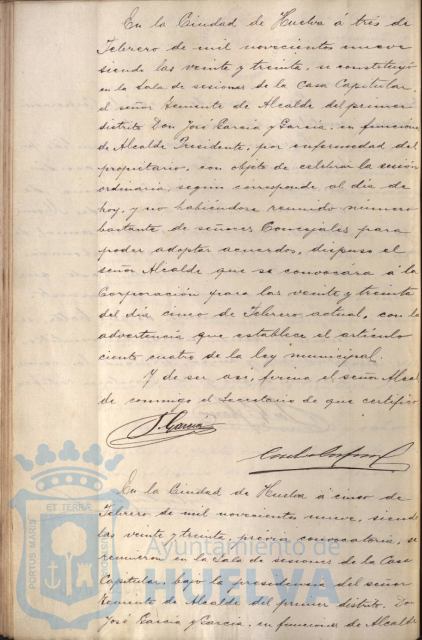 En la Ciudad de Huelva á tres de
Febrero de mil novecientos nueve
siendo las veinte y treinta, se constituyó
en la Sala de sesiones de la Casa Capitular,
el señor Teniente de Alcalde del primer
distrito Don José García y García, en funciones
de Alcalde Presidente, por enfermedad del
propietario, con objeto de celebrar la sesión
ordinaria, según corresponde al día de
hoy, y no habiéndose reunido número
bastante de señores Concejales para
poder adoptar acuerdos, dispuso el
señor Alcalde que se convocara á la
Corporación para las veinte y treinta
del día cinco de Febrero actual, con la
advertencia que establece el artículo
ciento cuatro de la ley municipal.
Y de ser así, firma el señor Alcal
de conmigo el Secretario de que certifico
J. García
En la Ciudad de Huelva á cinco de
Febrero de mil novecientos nueve, siendo
las veinte y treinta, previa convocatoria, se
reunieron en la Sala de sesiones de la Casa
Capitular, bajo la presidencia del señor
Teniente de Alcalde del primer distrito, Don
José García y García, en funciones de Alcalde
PORTUS MARIS
ET TERRAE
Ayuntamiento de
HUELVA